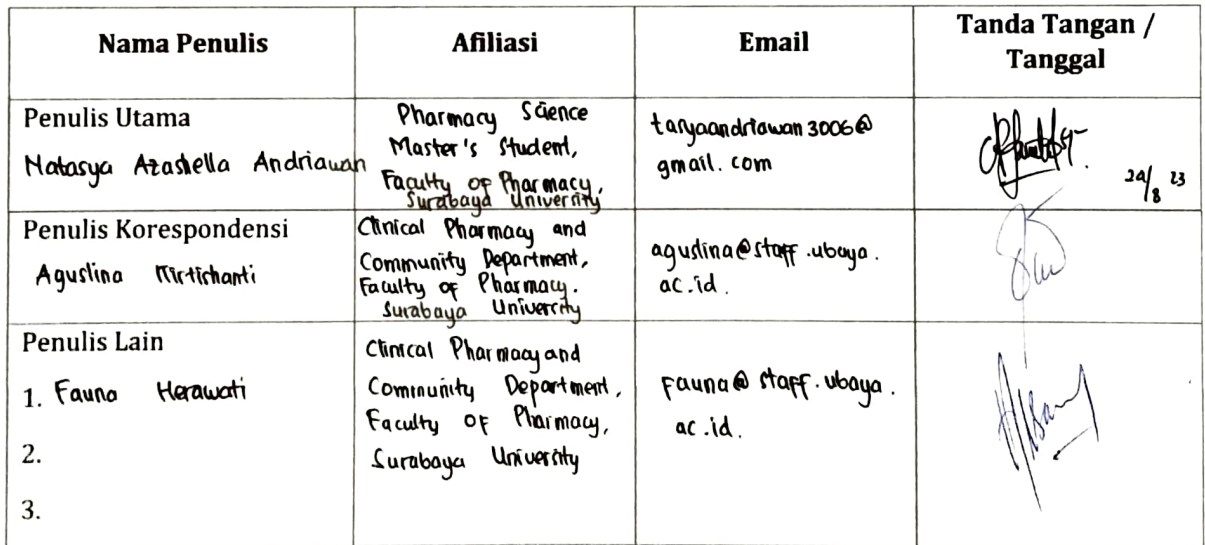 Nama Penulis
Afiliasi
Email
Tanda Tangan /
Tanggal
Penulis Utama
Natasya Azashella Andriawan
Pharmacy Science
Master's Student,
Faculty of Pharmacy,
Surabaya University
tasyaandriawan3006@
gmail.com
24/8 23
Penulis Korespondensi
Agustina Kirtishanti
Clinical Pharmacy and
Community Department,
Faculty of Pharmacy.
Surabaya University
agustina@staff.ubaya.
ac.id.
Penulis Lain
1. Fauna Herawati
2.
3.
Clinical Pharmacy and
Community Department,
Faculty of Pharmacy,
Surabaya University
fauna@staff.ubaya.
ac.id.